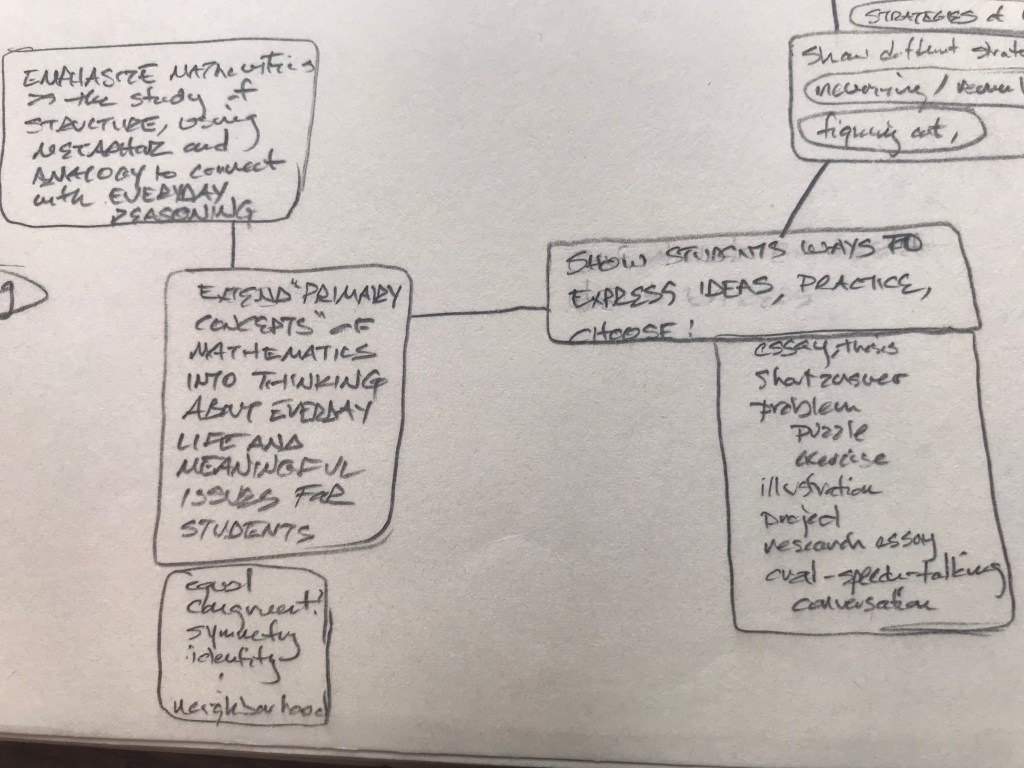 EMPHASIZE MATHEMATICS
as the study of
STRUCTURE, using
METAPHOR and
ANALOGY to connect
with EVERYDAY
REASONING
STRATEGIES &
Show different
memorizing /
figuring out,
EXTEND "PRIMARY
CONCEPTS" OF
MATHEMATICS
INTO THINKING
ABOUT EVERDAY
LIFE AND
MEANINGFUL
ISSUES FOR
STUDENTS
equal
congruent
symmetry
identity
neighborhood
SHOW STUDENTS WAYS TO
EXPRESS IDEAS, PRACTICE,
CHOOSE!
essay, thesis
Short answer
problem
puzzle
exercise
illustration
project
research essay
oral-speech-talking
conversation